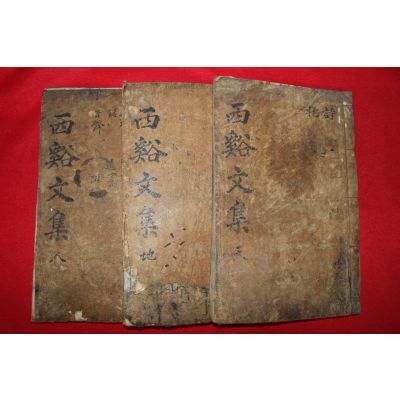 西谿文集 天
詩
西谿文集 地
西谿文集 人